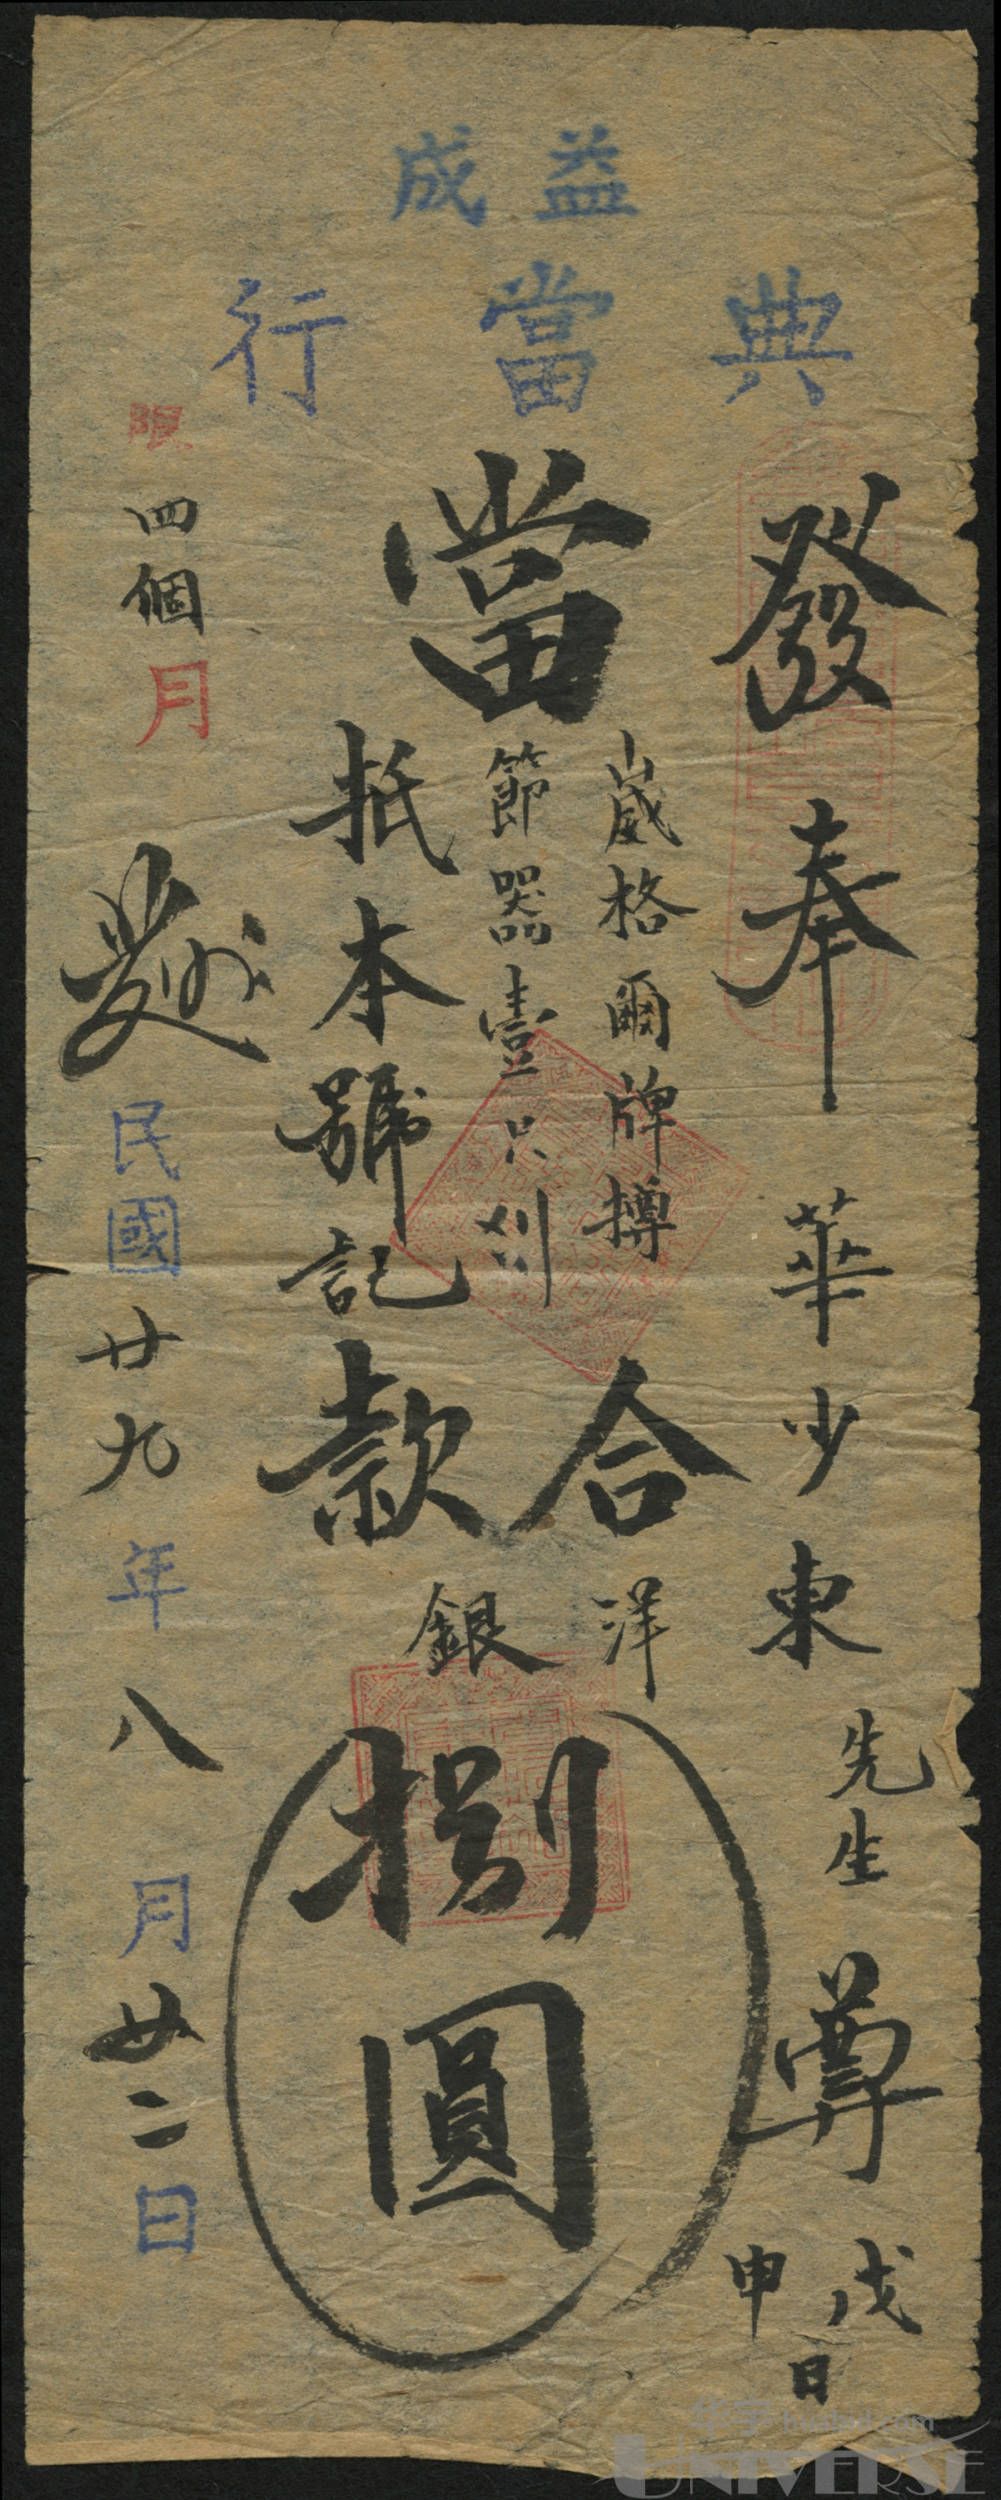 益成
典當行
發奉華少東先生尊
戊申日
當
崴格爾牌搏
節器壹只
抵本號記
合款
洋銀
捌圓
限四個月
民國廿九年八月廿二日
华宇
UNIVERSE